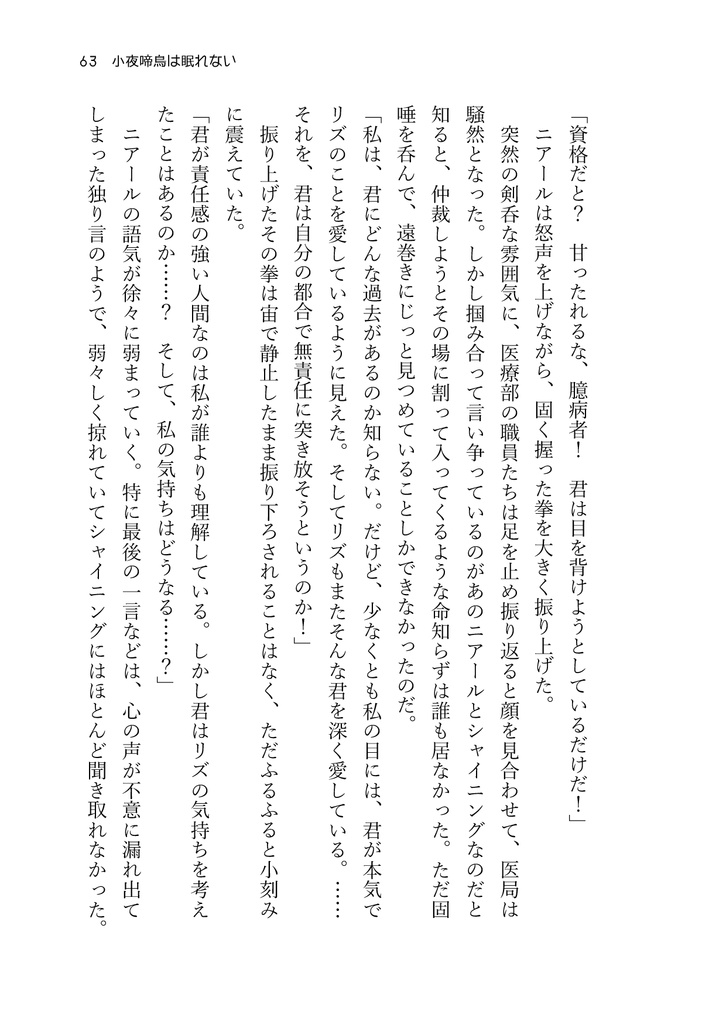 63 小夜啼鳥は眠れない
「資格だと？　甘ったれるな、臆病者！　君は目を背けようとしているだけだ！」
　ニアールは怒声を上げながら、固く握った拳を大きく振り上げた。
　突然の剣呑な雰囲気に、医療部の職員たちは足を止め振り返ると顔を見合わせて、医局は
騒然となった。しかし掴み合って言い争っているのがあのニアールとシャイニングなのだと
知ると、仲裁しようとその場に割って入ってくるような命知らずは誰も居なかった。ただ固
唾を呑んで、遠巻きにじっと見つめていることしかできなかったのだ。
「私は、君にどんな過去があるのか知らない。だけど、少なくとも私の目には、君が本気で
リズのことを愛しているように見えた。そしてリズもまたそんな君を深く愛している。……
それを、君は自分の都合で無責任に突き放そうというのか！」
　振り上げたその拳は宙で静止したまま振り下ろされることはなく、ただふるふると小刻み
に震えていた。
「君が責任感の強い人間なのは私が誰よりも理解している。しかし君はリズの気持ちを考え
たことはあるのか……？　そして、私の気持ちはどうなる……？」
　ニアールの語気が徐々に弱まっていく。特に最後の一言などは、心の声が不意に漏れ出て
しまった独り言のようで、弱々しく掠れていてシャイニングにはほとんど聞き取れなかった。